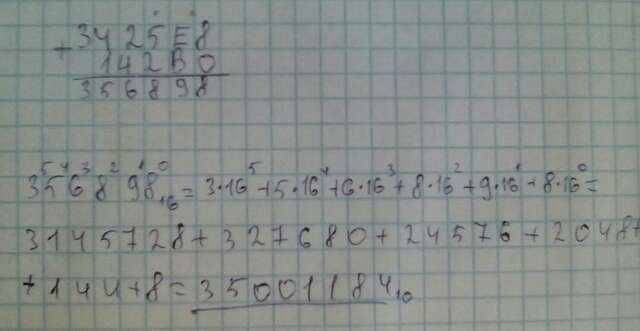 3425E8
+
142B0
356898
3⁵5⁴6³8²9¹8⁰₁₆ = 3·16⁵+5·16⁴+6·16³+8·16²+9·16¹+8·16⁰=
3145728+327680+24576+2048+
+144+8=35001184₁₀